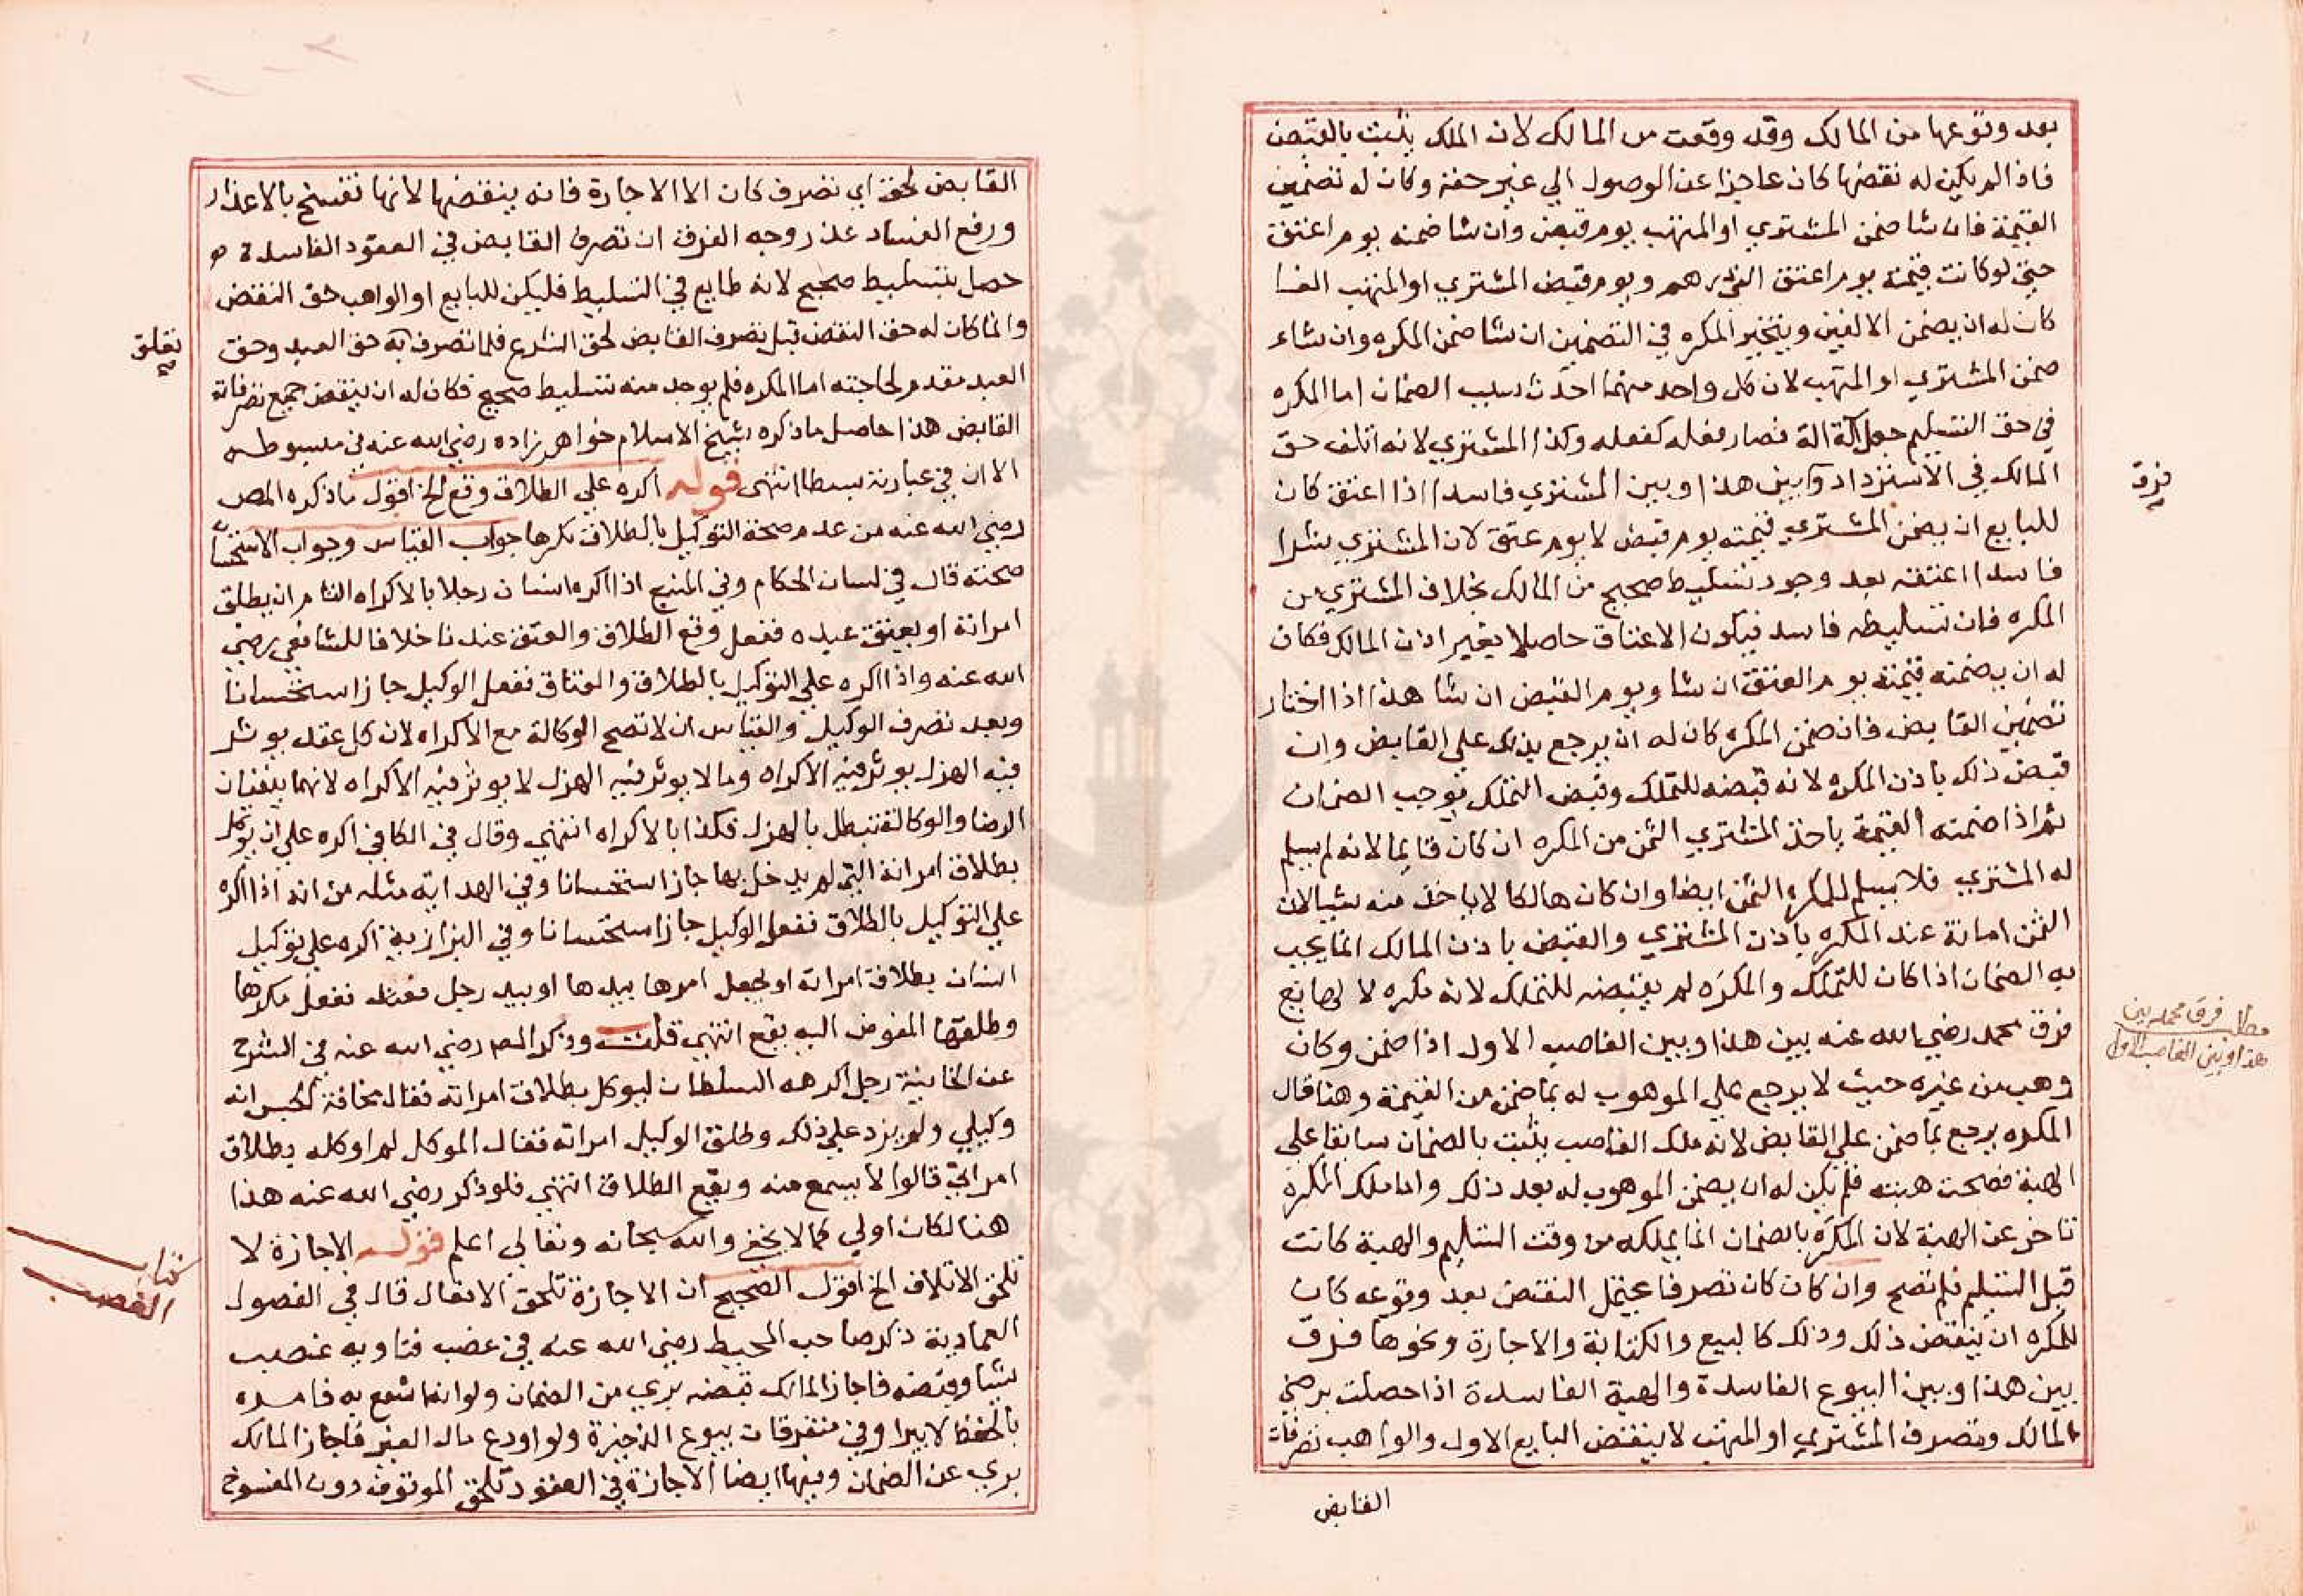 بعد وقوعها من المالك وقد وقعت من المالك لان الملك يثبت بالقبض
فاذا لم يكن له نقضها كان عاجزا عن الوصول الي عين حقه وكان له تضمين
القيمة فان شا ضمن المشتري او المتهب يوم قبض وان شا ضمنه يوم اعتق
حتي لو كانت قيمته يوم اعتق الفي درهم ويوم قبض المشتري او المتهب الفا
كان له ان يضمن الالفين ويتخير المكره في التضمين ان شا ضمن المكره وان شاء
ضمن المشتري او المتهب لان كل واحد منهما احدث سبب الضمان اما المكره
في حق التسليم جعل آلة له فصار فعله كفعله وكذا المشتري لانه اتلف حق
المالك في الاسترداد وبين هذا وبين المشتري فاسدا اذا اعتق كان
فرق
للبايع ان يضمن المشتري قيمته يوم قبض لا يوم عتق لان المشتري بشرا
فاسدا اعتقه بعد وجود تسليط صحيح من المالك بخلاف المشتري من
المكره فان تسليطه فاسد فيكون الاعتاق حاصلا بغير اذن المالك فكان
له ان يضمنه قيمته يوم العتق ان شا ويوم القبض ان شا هذا اذا اختار
تضمين القابض فان ضمن المكره كان له ان يرجع بذلك علي القابض وان
قبض ذلك باذن المكره لانه قبضه للتملك وقبض التملك يوجب الضمان
ثم اذا ضمنه القيمة ياخذ المشتري الثمن من المكره ان كان قايما لانه لم يسلم
له المشتري فلا يسلم للمكره الثمن ايضا وان كان هالكا لا ياخذ منه شيا لان
الثمن امانة عند المكره باذن المشتري والقبض باذن المالك انما يجب
به الضمان اذا كان للتملك والمكره لم يقبضه للتملك لانه مكره لا طايع
فرق محمد رضي الله عنه بين هذا وبين الغاصب الاول اذا ضمن وكان
مطلب فرق محمد بين
هذا وبين الغاصب الاول
وهب من غيره حيث لا يرجع علي الموهوب له بما ضمن من القيمة وهنا قال
المكره يرجع بما ضمن علي القابض لانه ملك الغاصب يثبت بالضمان سابقا علي
الهبة فصحت هبته فلم يكن له ان يضمن الموهوب له بعد ذلك واما ملك المكره
تاخر عن الهبة لان المكره بالضمان انما يملكه من وقت التسليم والهبة كانت
قبل التسليم فلم تصح وان كان كان تصرفا يحتمل النقض بعد وقوعه كان
للمكره ان ينقض ذلك وذلك كالبيع والكتابة والاجارة ونحوها فرق
بين هذا وبين البيوع الفاسدة والهبة الفاسدة اذا حصلت برضي
المالك وتصرف المشتري او المتهب لا ينقض البايع الاول والواهب تصرفات
القابض
القابض لحقه اي تصرف كان الا الاجارة فانه ينقضها لانها تفسخ بالاعذار
ورفع الفساد عذر وجه الفرق ان تصرف القابض في العقود الفاسدة
حصل بتسليط صحيح لانه طايع في التسليط فلم يكن للبايع او الواهب حق النقض
وانما كان له حق النقض قبل تصرف القابض لحق الشرع فلما تصرف به حق العبد وحق
تعلق
العبد مقدم لحاجته اما المكره فلم يوجد منه تسليط صحيح فكان له ان ينقض جميع تصرفات
القابض هذا حاصل ما ذكره شيخ الاسلام خواهر زاده رضي الله عنه في مبسوطه
الا ان في عبارته بسطا انتهي قوله اكره علي الطلاق وقع الخ اقول ما ذكره المص
رضي الله عنه من عدم صحة التوكيل بالطلاق مكرها جواب القياس وجواب الاستحسان
صحته قال في لسان الحكام وفي المنبع اذا اكره انسان رجلا بالاكراه التام ان يطلق
امراته او يعتق عبده ففعل وقع الطلاق والعتق عندنا خلافا للشافعي رضي
الله عنه واذا اكره علي التوكيل بالطلاق والعتاق ففعل الوكيل جاز استحسانا
وبعد تصرف الوكيل والقياس ان لا تصح الوكالة مع الاكراه لان كل عقد يوثر
فيه الهزل يوثر فيه الاكراه وما لا يوثر فيه الهزل لا يوثر فيه الاكراه لانهما ينفيان
الرضا والوكالة تبطل بالهزل فكذا بالاكراه انتهي وقال في الكافي اكره علي ان يوكل
بطلاق امراته التي لم يدخل بها جاز استحسانا وفي الهداية مثله من انه اذا اكره
علي التوكيل بالطلاق ففعل الوكيل جاز استحسانا وفي البزازية اكره علي توكيل
انسان بطلاق امراته او يجعل امرها بيدها او بيد رجل ففعل مكرها
وطلقها المفوض اليه يقع انتهي قلت وذكر المص رضي الله عنه في الشرح
عن الخانية رجل اكرهه السلطان ليوكل بطلاق امراته فقال مخافة الحبس انه
وكيلي ولم يزد علي ذلك وطلق الوكيل امراته فقال الموكل لم اوكله بطلاق
امراتي قالوا لا يسمع منه ويقع الطلاق انتهي فلو ذكر رضي الله عنه هذا
هنا لكان اولي كما لا يخفي والله سبحانه وتعالي اعلم قوله الاجازة لا
كتاب
الغصب
تلحق الاتلاف الخ اقول الصحيح ان الاجازة تلحق الافعال قال في الفصول
العمادية ذكر صاحب المحيط رضي الله عنه في غصب فتاويه غصب
شيا وقبضه فاجاز المالك قبضه بري من الضمان ولو انتفع به فامره
بالحفظ لا يبرا وفي متفرقات بيوع الذخيرة ولو اودع مال الغير فاجاز المالك
بري عن الضمان وفيها ايضا الاجازة في العقود تلحق الموقوف دون المفسوخ